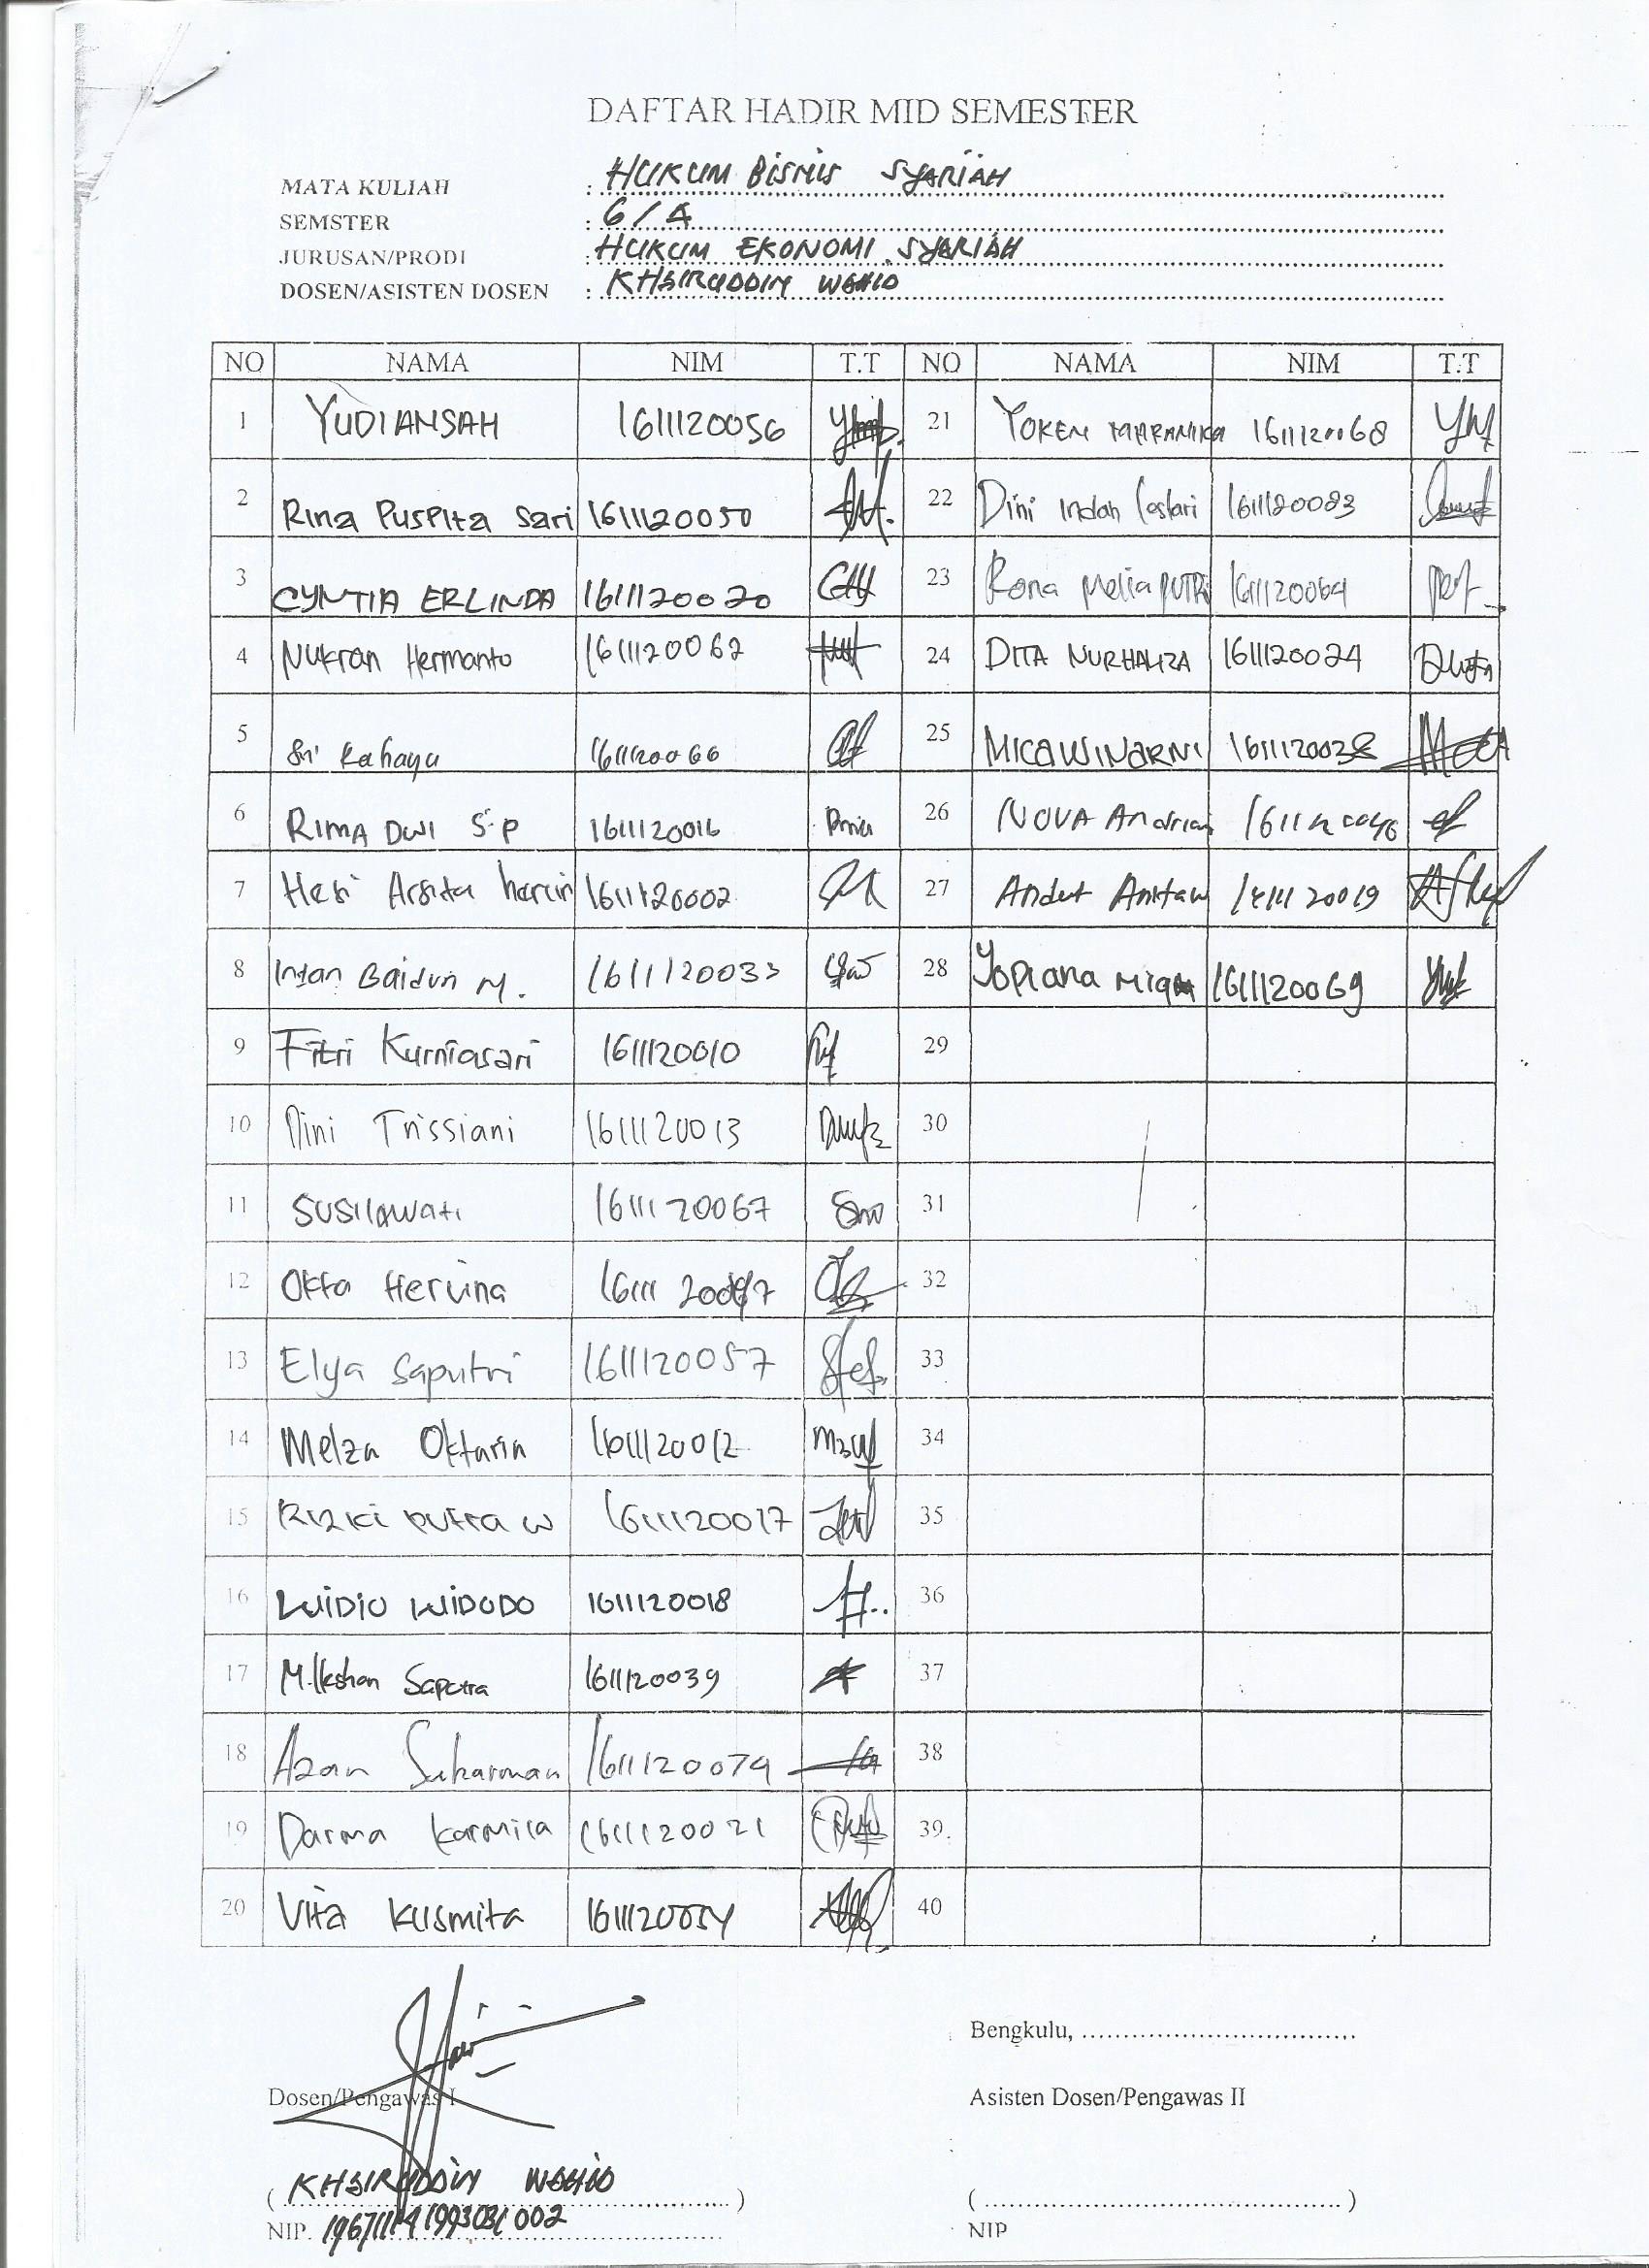 DAFTAR HADIR MID SEMESTER
MATA KULIAH : HUKUM BISNIS SYARIAH
SEMSTER : 6/A
JURUSAN/PRODI : HUKUM EKONOMI SYARIAH
DOSEN/ASISTEN DOSEN : KHAIRUDDIN WAHID
NO NAMA NIM T.T NO NAMA NIM T.T
1 YUDIANSAH 1611120056 21 YOKEN MARANIKA 1611120068
2 Rina Puspita Sari 1611120050 22 Dini Indah Lestari 1611120083
3 CYNTIA ERLINDA 1611120020 23 Rona Melia PUTRI 1611120064
4 Nukran Hermanto 1611120062 24 DITA NURHALIZA 1611120024
5 Sri Rahayu 1611120066 25 MICA WINARNI 1611120038
6 RIMA DWI S.P 1611120016 26 NOVA Andrian
7 Hesi Arsita 1611120002 27
8 Intan Baidun M. 1611120033 28 Yopiana 1611120069
9 Fitri Kurniasari 1611120010 29
10 Dini Trissiani 1611120013 30
11 SUSILAWATI 1611120067 31
12 Okta Hervina 32
13 Elya Saputri 1611120057 33
14 Melza Oktaria 1611120012 34
15 RIZKI PUTRA W 1611120017 35
16 WIDIO WIDODO 1611120018 36
17 M.Ikshan Saputra 1611120039 37
18 Azan Sukarman 1611120074 38
19 Darma Karmila 1611120021 39
20 Vita Kusmita 1611120054 40
Bengkulu, ....................................
Dosen/Pengawas I Asisten Dosen/Pengawas II
( KHAIRUDDIN WAHID ) ( .................................................. )
NIP. 196711141993031002 NIP